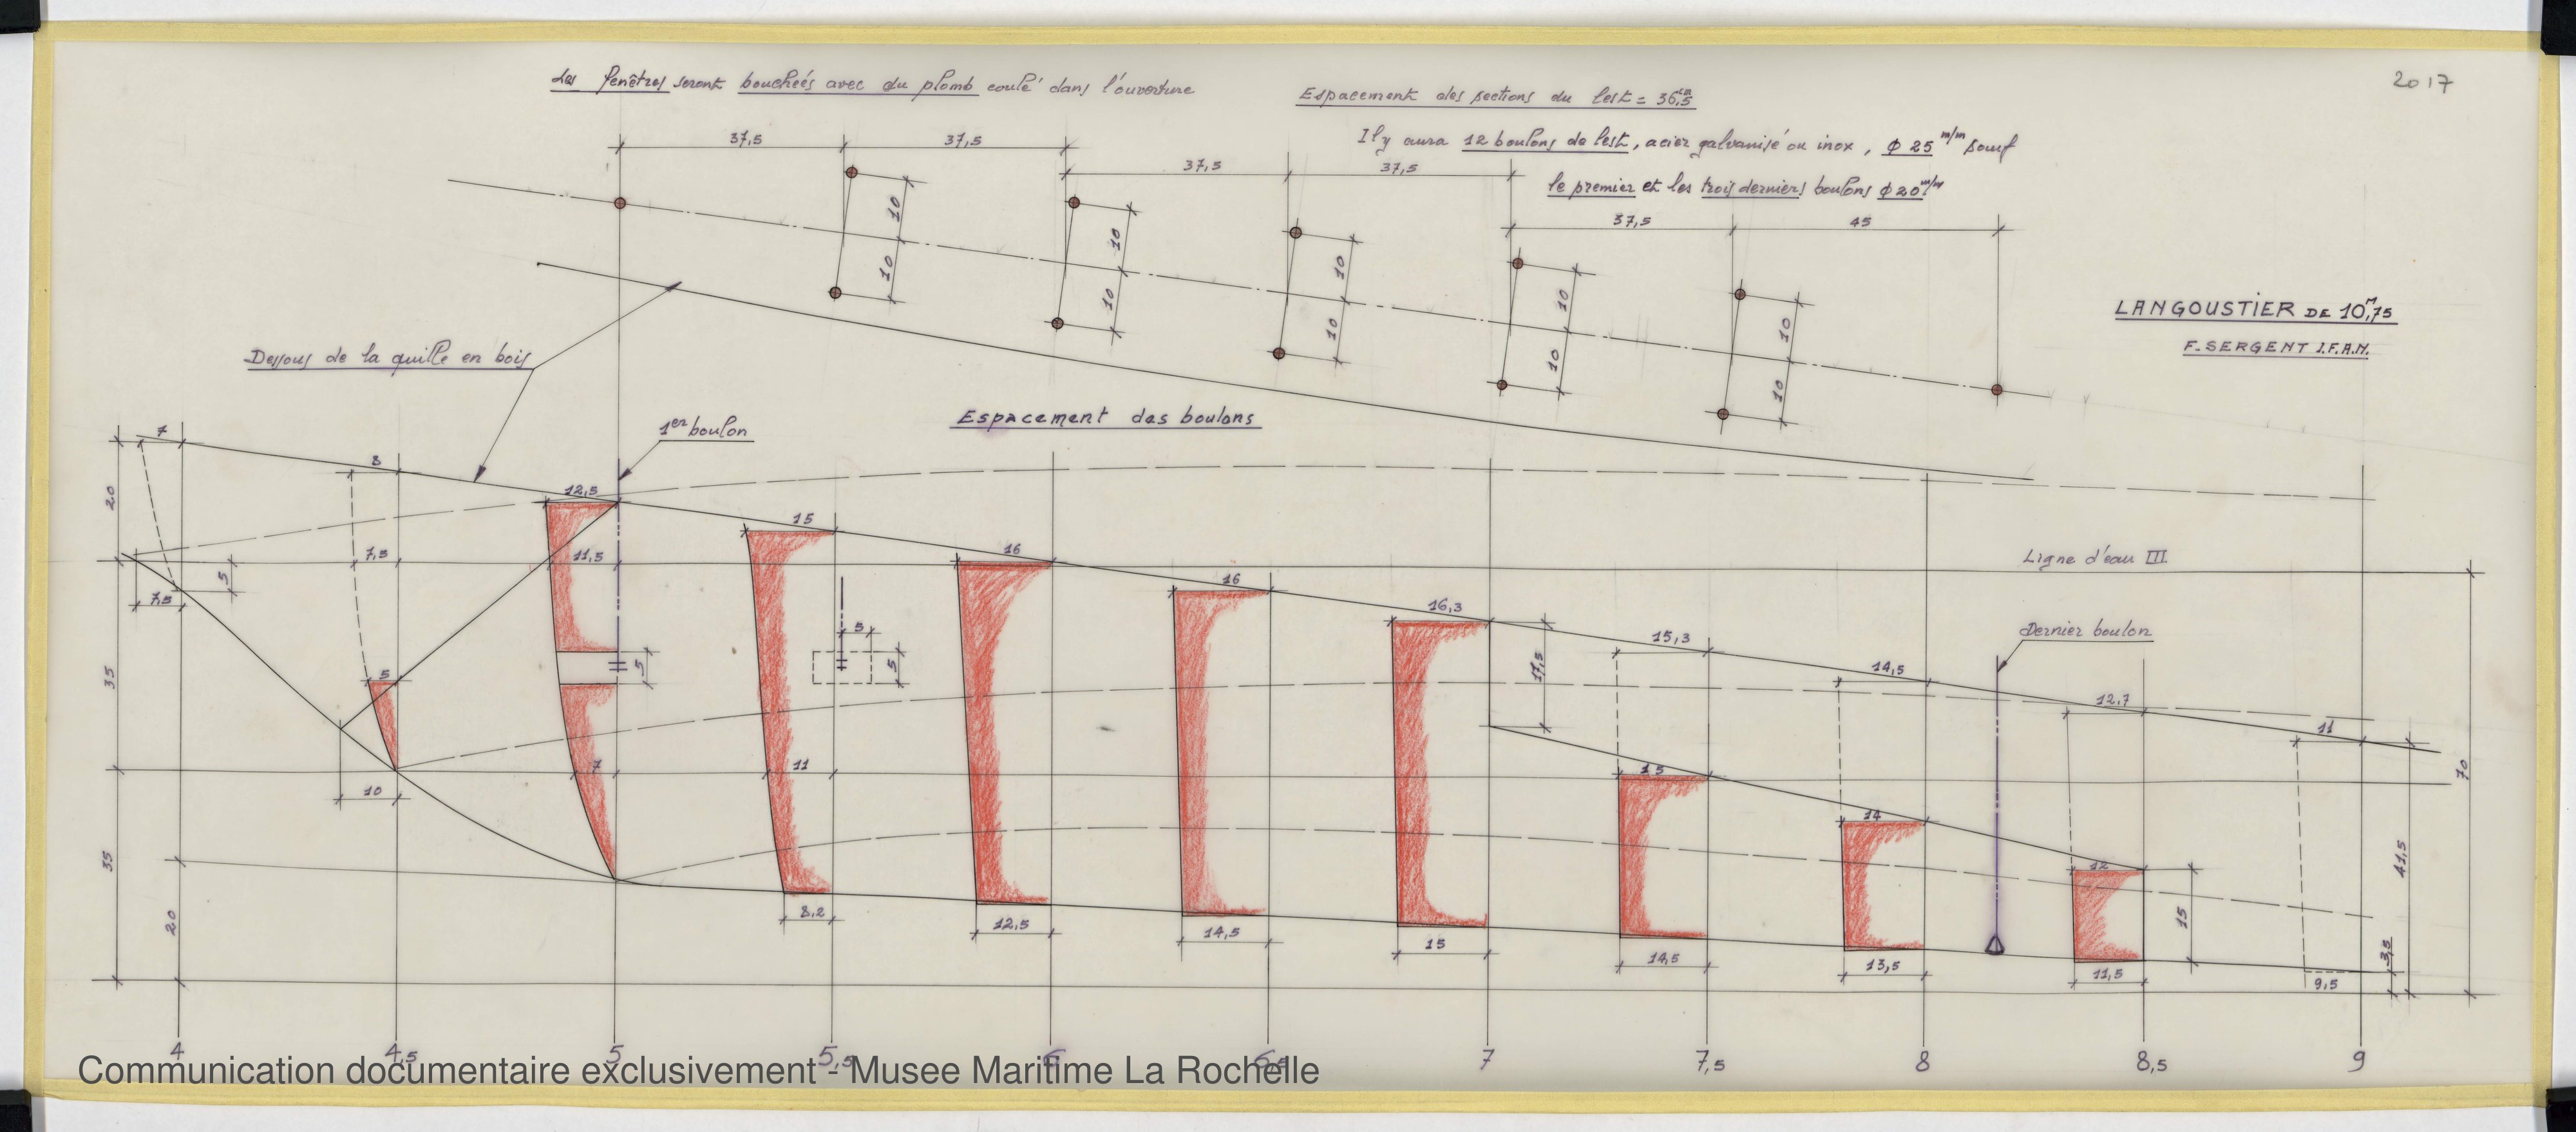 Les fenêtres seront bouchées avec du plomb coulé dans l'ouverture
Espacement des sections du lest = 36,5 cm
2017
Il y aura 12 boulons de lest, acier galvanisé ou inox, ϕ 25 m/m sauf
le premier et les trois derniers boulons ϕ 20 m/m
37,5
37,5
37,5
37,5
37,5
45
10
10
10
10
10
10
10
10
10
10
LANGOUSTIER DE 10m,75
F. SERGENT I.F.A.N.
Dessous de la quille en bois
1er boulon
Espacement des boulons
7
8
12,5
15
16
16
16,3
15,3
14,5
12,7
11
20
7,5
11,5
Ligne d'eau III
5
7,5
Dernier boulon
35
5
5
5
5
17,5
7
11
15
10
70
14
35
12
41,5
20
8,2
12,5
14,5
15
14,5
13,5
15
11,5
3,5
9,5
4
4,5
5
5,5
6
6,5
7
7,5
8
8,5
9
Communication documentaire exclusivement - Musee Maritime La Rochelle